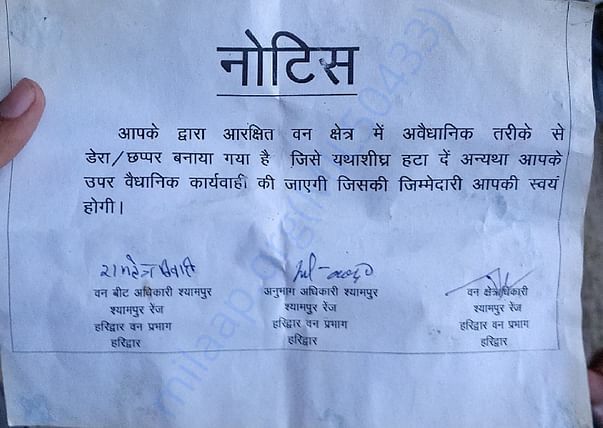 नोटिस
आपके द्वारा आरक्षित वन क्षेत्र में अवैधानिक तरीके से
डेरा/छप्पर बनाया गया है जिसे यथाशीघ्र हटा दें अन्यथा आपके
उपर वैधानिक कार्यवाही की जाएगी जिसकी जिम्मेदारी आपकी स्वयं
होगी।
वन बीट अधिकारी श्यामपुर अनुभाग अधिकारी श्यामपुर वन क्षेत्राधिकारी
श्यामपुर रेंज श्यामपुर रेंज श्यामपुर रेंज
हरिद्वार वन प्रभाग हरिद्वार वन प्रभाग हरिद्वार वन प्रभाग
हरिद्वार हरिद्वार हरिद्वार